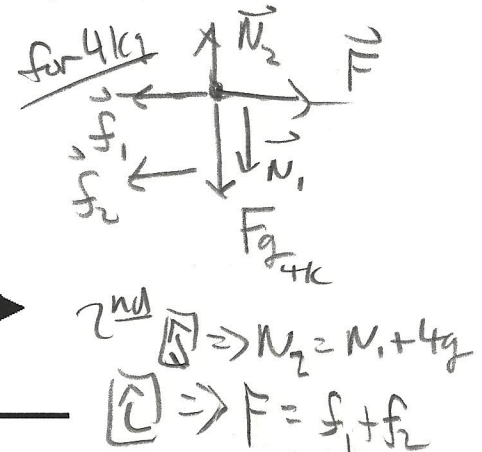 for 4kg
N₂
F
f₁
N₁
f₂
Fg₄ₖ
2nd [ĵ] => N₂ = N₁ + 4g
[î] => F = f₁ + f₂